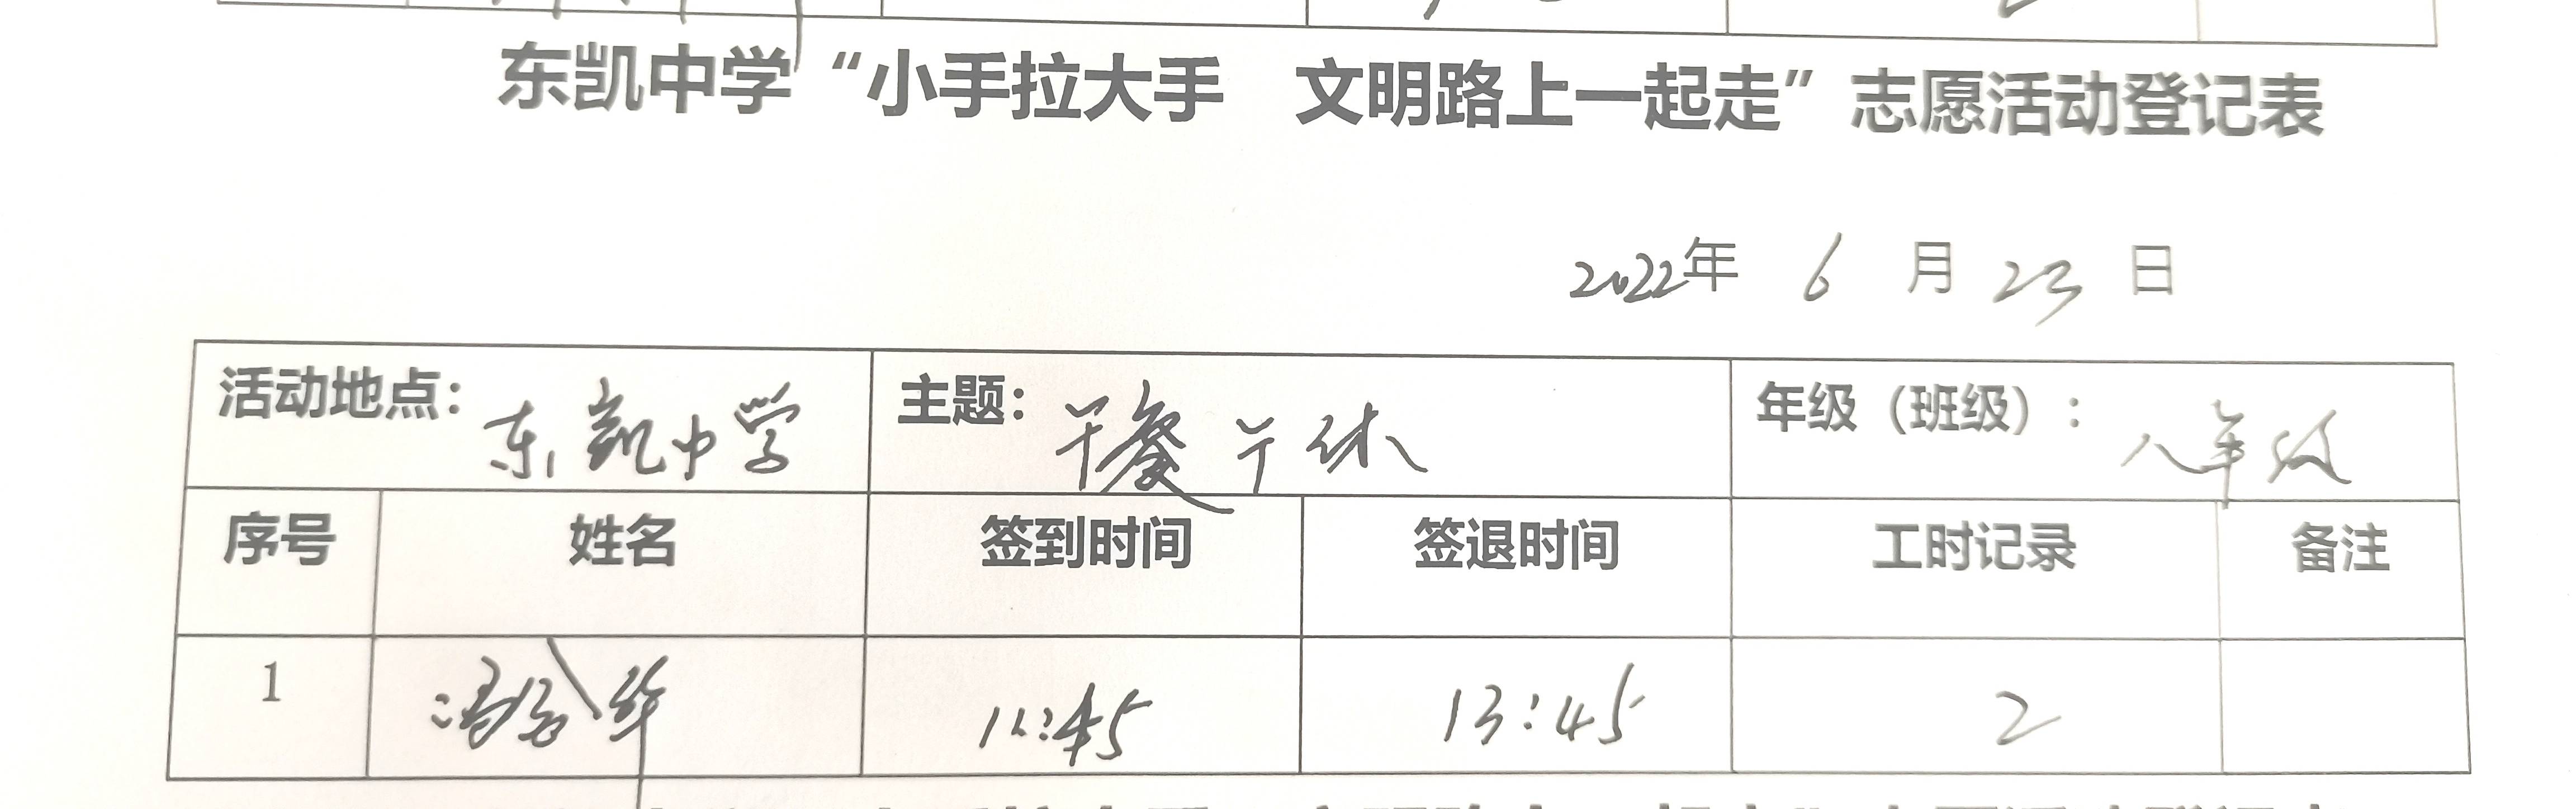 东凯中学“小手拉大手　文明路上一起走”志愿活动登记表
2022年 6 月 23 日
活动地点：东凯中学 主题：午餐午休 年级（班级）：八年级
序号 姓名 签到时间 签退时间 工时记录 备注
1 11:45 13:45 2